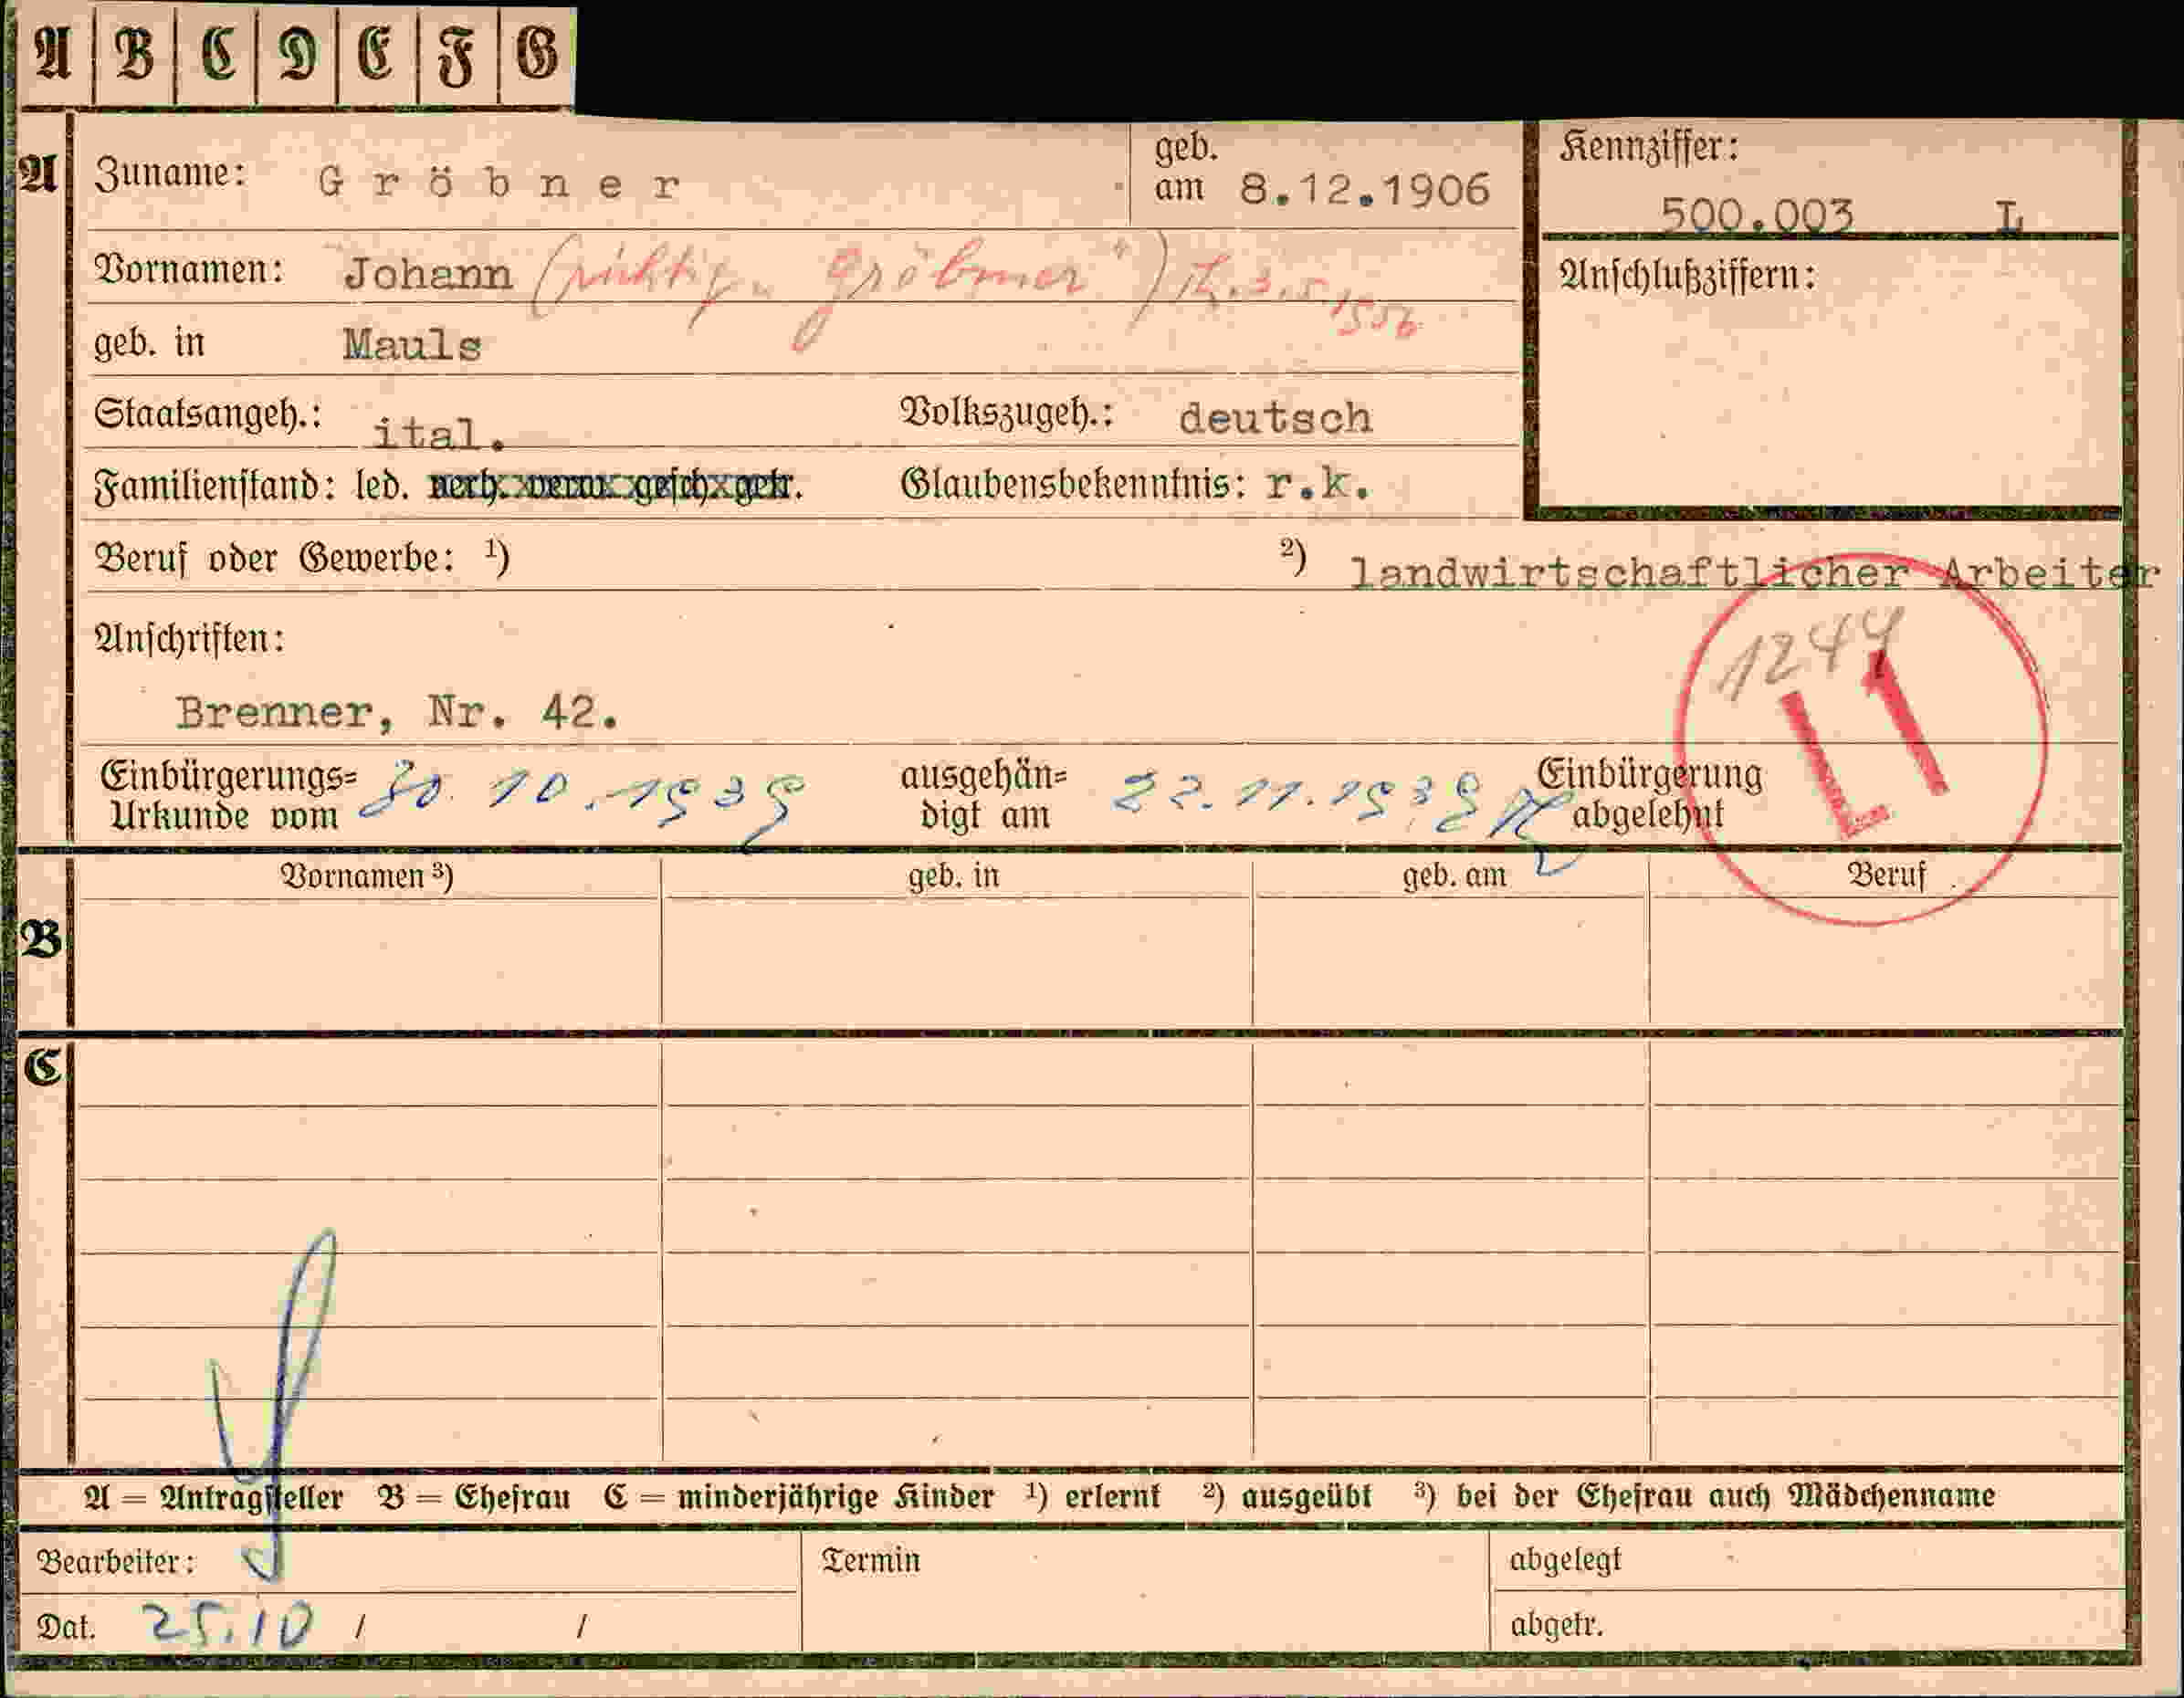 A B C D E F G
A Zuname: Gröbner geb. am 8.12.1906 Kennziffer: 500.003 L
Vornamen: Johann (richtig „Gröbmer") 3.5.1956 Anschlußziffern:
geb. in Mauls
Staatsangeh.: ital. Volkszugeh.: deutsch
Familienstand: led. verh. verw. gesch. getr. Glaubensbekenntnis: r.k.
Beruf oder Gewerbe: ¹) ²) landwirtschaftlicher Arbeiter
Anschriften:
1244
Brenner, Nr. 42.
L1
Einbürgerungs= Urkunde vom 30.10.1939 ausgehän= digt am 22.11.1939 Einbürgerung abgelehnt
Vornamen ³) geb. in geb. am Beruf
B
C
A = Antragsteller B = Ehefrau C = minderjährige Kinder ¹) erlernt ²) ausgeübt ³) bei der Ehefrau auch Mädchenname
Bearbeiter: Termin abgelegt
Dat. 25.10 / / abgetr.